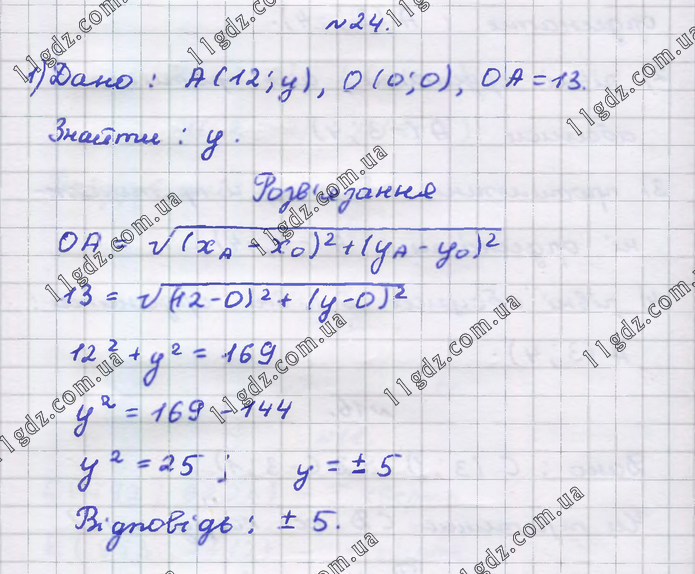 №24.
1) Дано : A(12; y), O(0; 0), OA = 13.
Знайти : y.
Розв'язання
OA = √((x_A - x_O)² + (y_A - y_O)²)
13 = √((12 - 0)² + (y - 0)²)
12² + y² = 169
y² = 169 - 144
y² = 25 ; y = ± 5
Відповідь : ± 5.
11gdz.com.ua
11gdz.com.ua
11gdz.com.ua
11gdz.com.ua
11gdz.com.ua
11gdz.com.ua
11gdz.com.ua
11gdz.com.ua
11gdz.com.ua
11gdz.com.ua
11gdz.com.ua
11gdz.com.ua
11gdz.com.ua